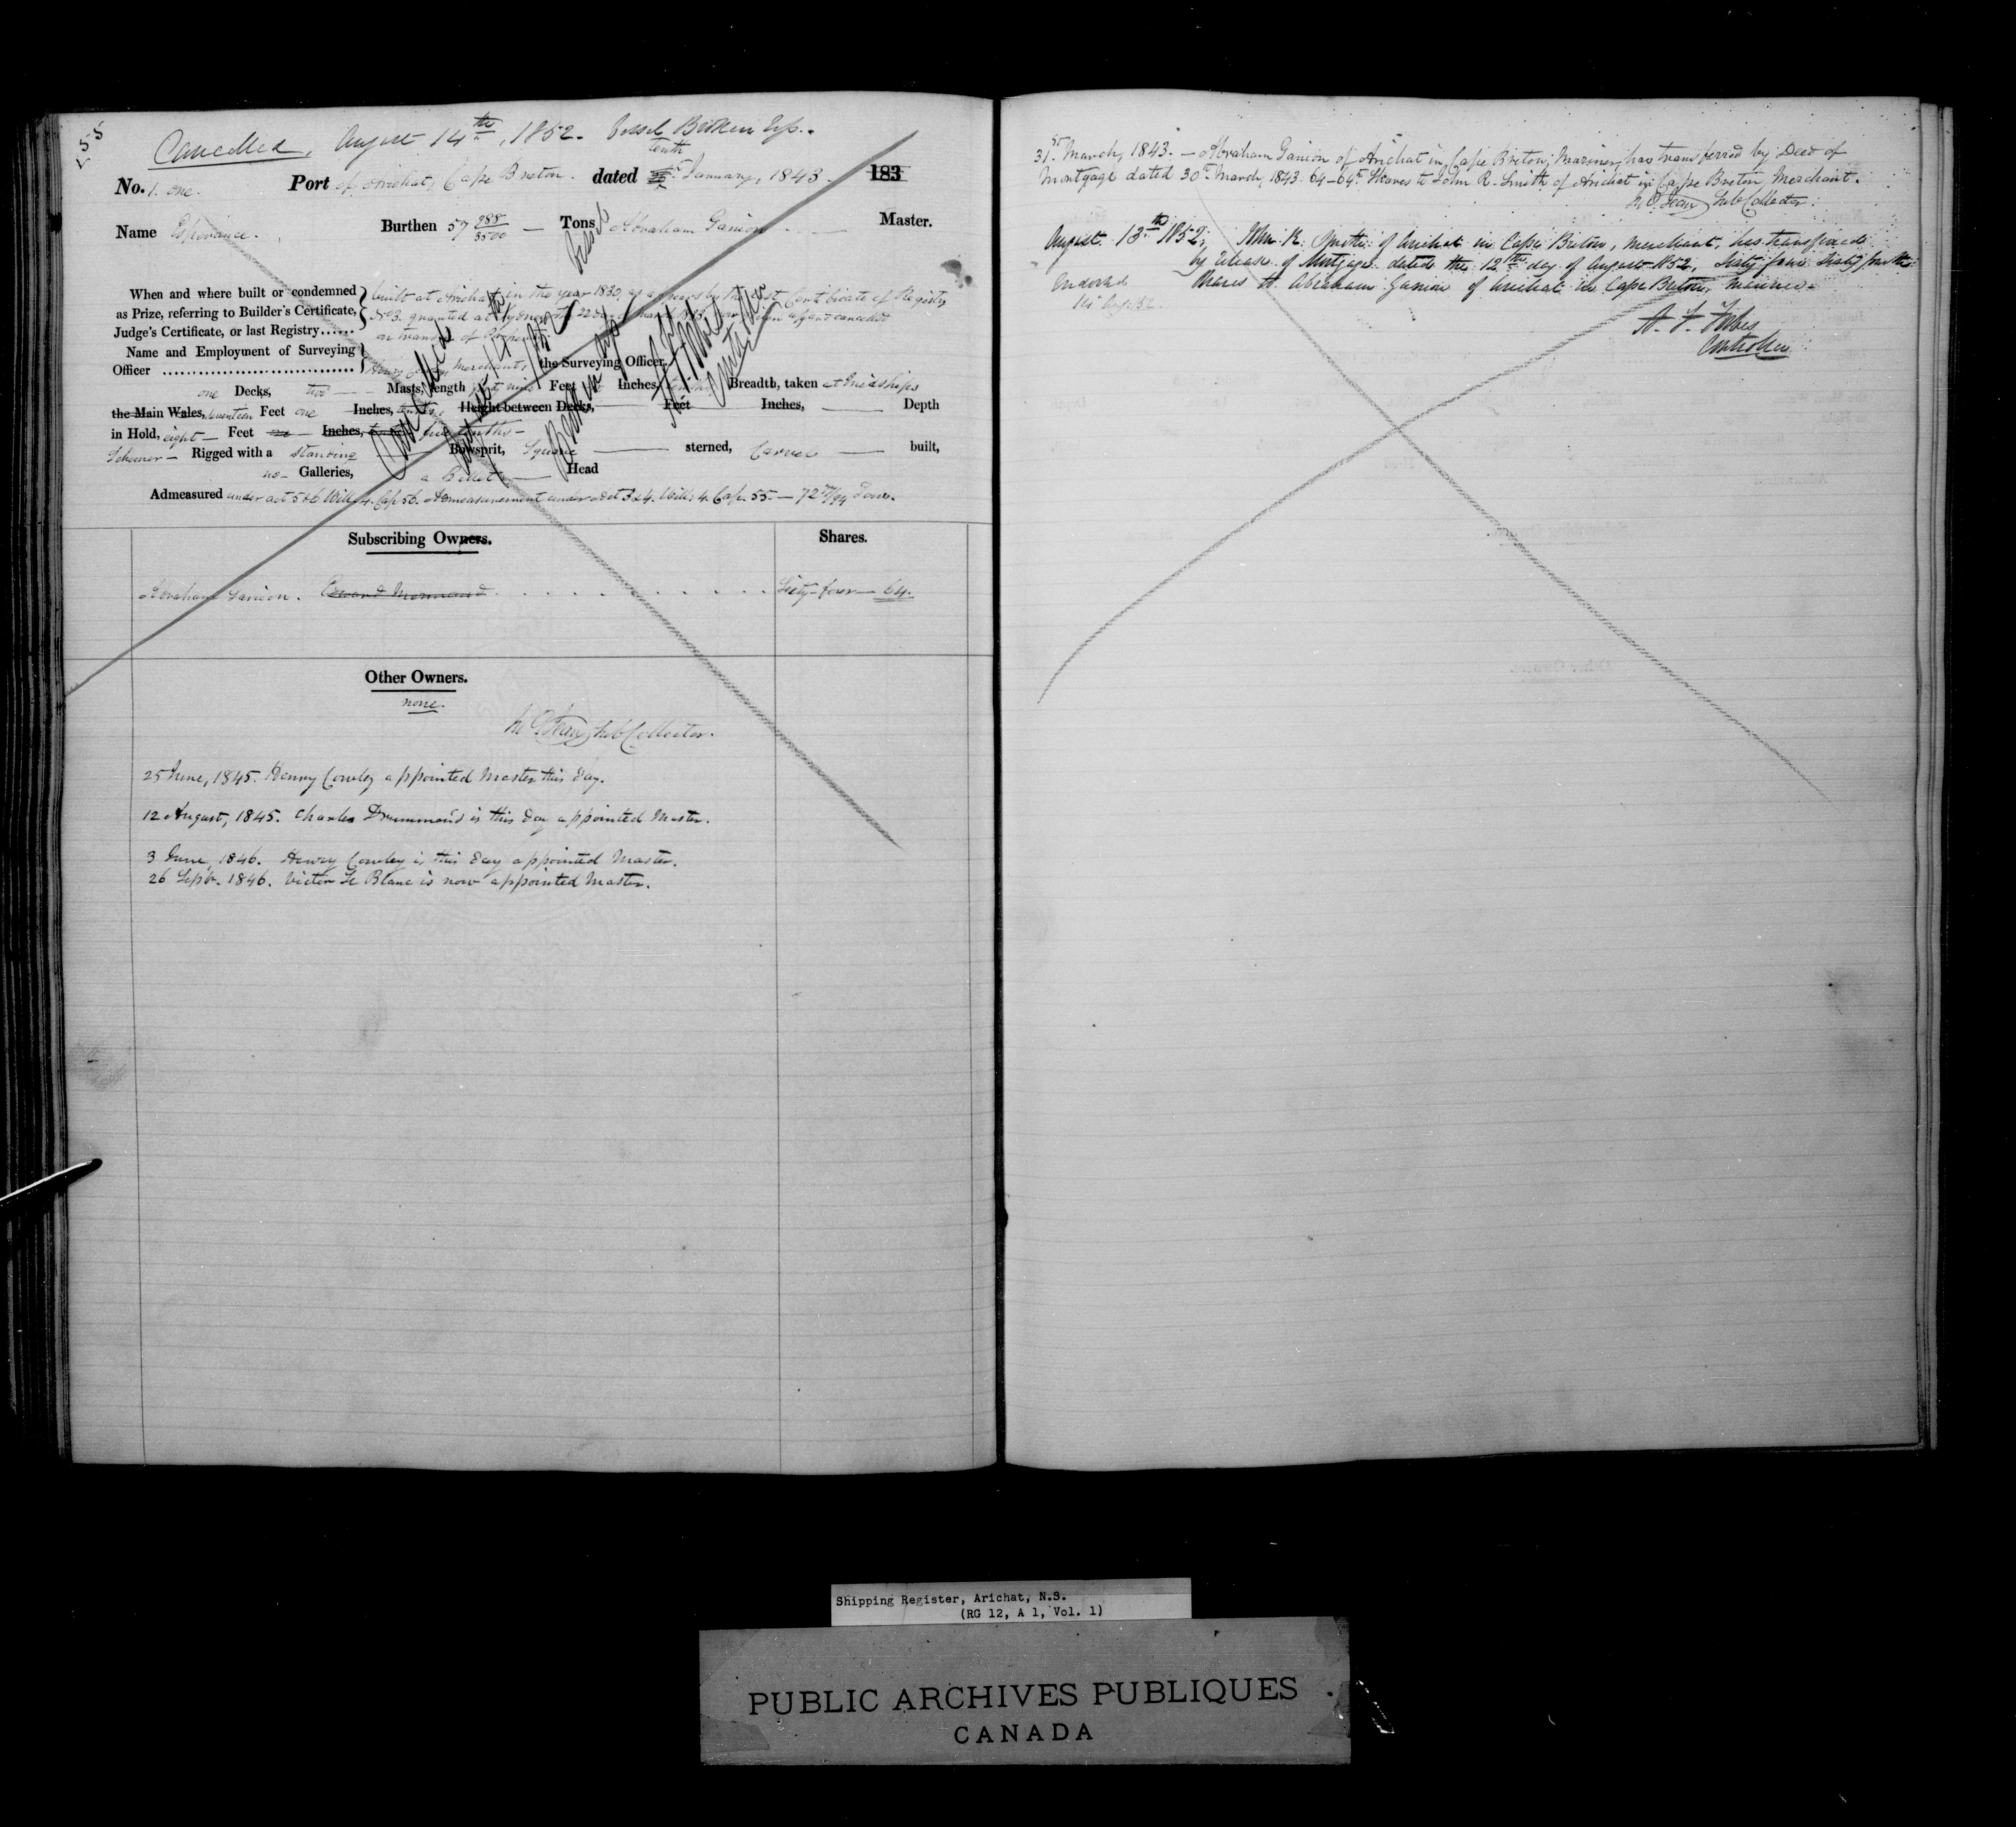 Cancelled, August 14th, 1852. Vessel Broken Up.
tenth
No. 1. one. Port of Arichat, Cape Breton. dated January, 1843. 183
Name Esperance. Burthen 57 288/3500 Tons Abraham Ganion Master.
When and where built or condemned
as Prize, referring to Builder's Certificate,
Judge's Certificate, or last Registry......
built at Arichat in the year 1830, as appears by the Certificate of Registry
No 3. granted at Sydney 22 March cancelled
on transfer of
Name and Employment of Surveying
Officer
Henry merchant, the Surveying Officer,
one Decks, two Masts, length Feet Inches, Breadth, taken at Midships
the Main Wales, seventeen Feet one Inches, tenths, Height between Decks, Feet Inches, Depth
in Hold, eight Feet Inches, five tenths
Schooner Rigged with a standing Bowsprit, Square sterned, Carvel built,
no Galleries, a Billet Head
Cancelled August 14th 1852 Vessel Broken up
Admeasured under act 5 & 6 Will. 4. Cap. 56. Admeasurement under act 3 & 4. Will: 4. Cap. 55 — 72 /94 Tons.
Subscribing Owners. Shares.
Abraham Ganion. Sixty-four 64.
Other Owners.
none.
Sub Collector.
25 June, 1845. Henry Cowley appointed Master this day.
12 August, 1845. Charles Drummond is this day appointed Master.
3 June, 1846. Henry Cowley is this day appointed Master.
26 Septr. 1846. Victor Le Blanc is now appointed Master.
31st March, 1843. — Abraham Ganion of Arichat in Cape Breton, Mariner, has transferred by Deed of
Mortgage dated 30th March, 1843. 64-64th Shares to John R. Smith of Arichat in Cape Breton, Merchant.
Sub Collector.
August 13th 1852; John R. Smith of Arichat in Cape Breton, merchant, has transferred
by release of Mortgage dated the 12th day of August 1852, Sixty four Sixty fourths
Endorsed Shares to Abraham Ganion of Arichat in Cape Breton, mariner.
14 Aug. 52.
Forbes
Controller
Shipping Register, Arichat, N.S.
(RG 12, A 1, Vol. 1)
PUBLIC ARCHIVES PUBLIQUES
CANADA